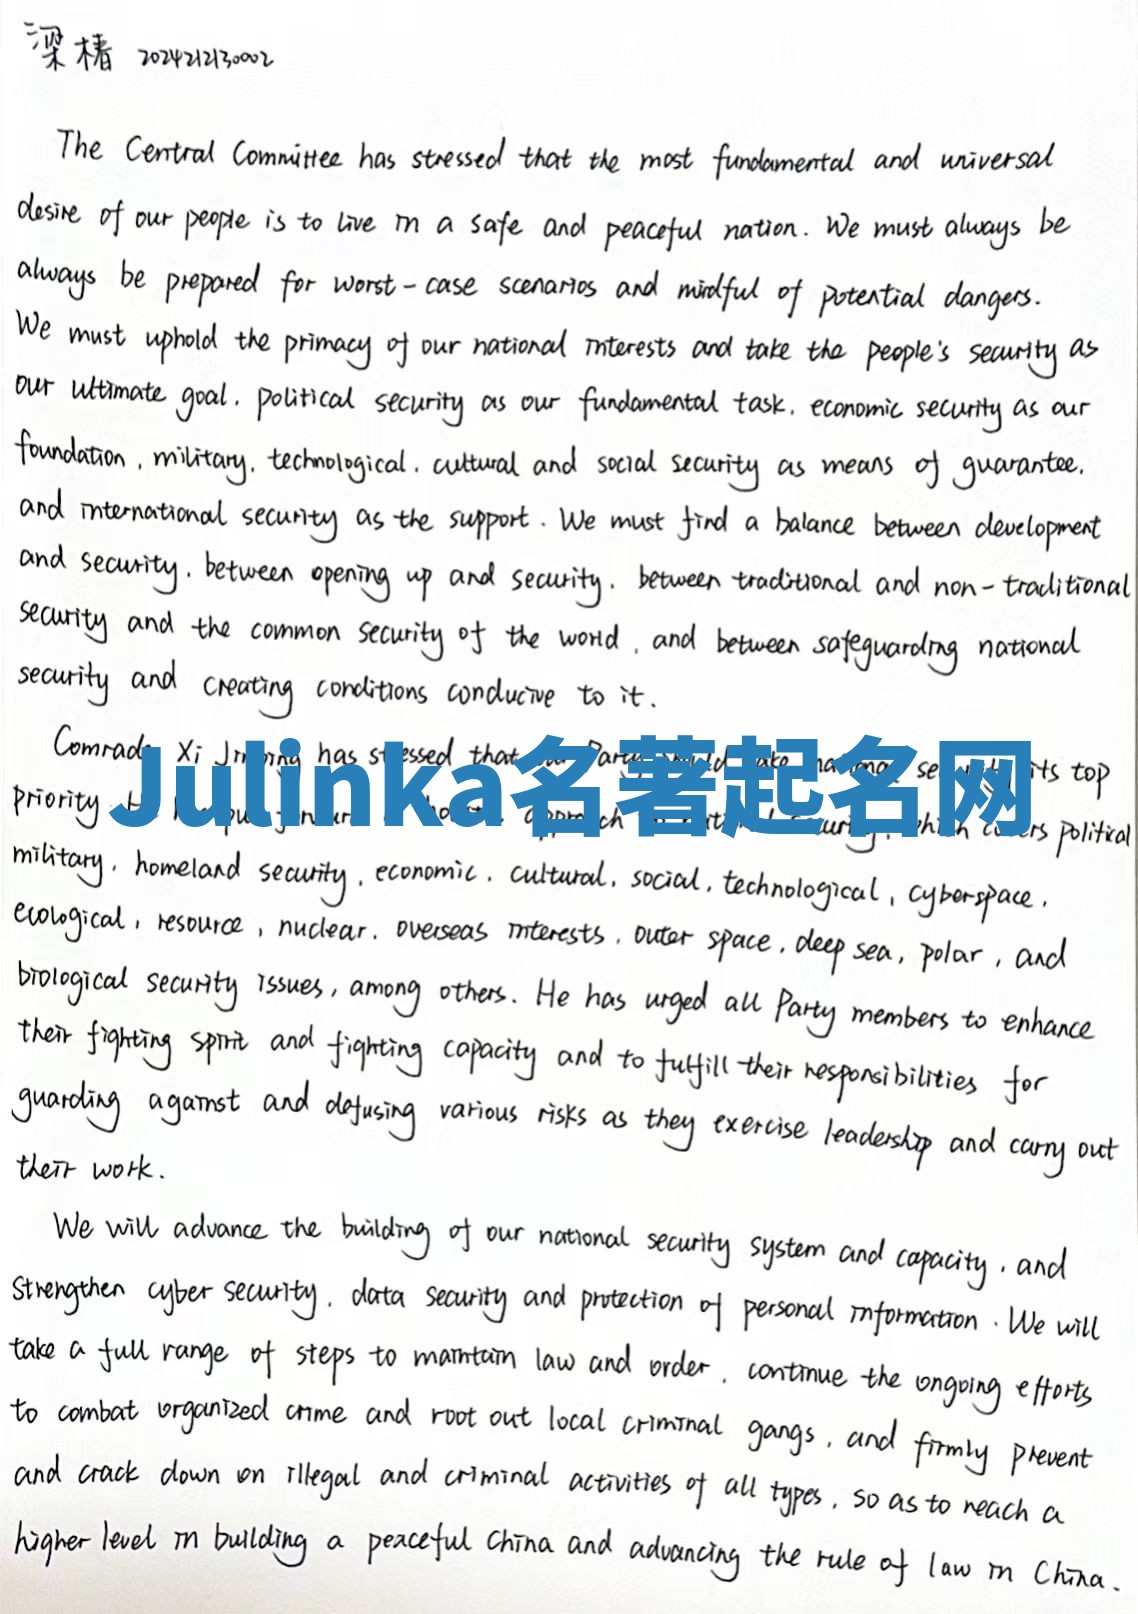 梁椿 2024212130002
The Central Committee has stressed that the most fundamental and universal
desire of our people is to live in a safe and peaceful nation. We must always be
always be prepared for worst-case scenarios and mindful of potential dangers.
We must uphold the primacy of our national interests and take the people's security as
our ultimate goal, political security as our fundamental task, economic security as our
foundation, military, technological, cultural and social security as means of guarantee,
and international security as the support. We must find a balance between development
and security, between opening up and security, between traditional and non-traditional
security and the common security of the world, and between safeguarding national
security and creating conditions conducive to it.
Comrade Xi Jinping has stressed that Party national its top
Julinka名著起名网
priority approach political
military, homeland security, economic, cultural, social, technological, cyberspace,
ecological, resource, nuclear, overseas interests, outer space, deep sea, polar, and
biological security issues, among others. He has urged all Party members to enhance
their fighting spirit and fighting capacity and to fulfill their responsibilities for
guarding against and defusing various risks as they exercise leadership and carry out
their work.
We will advance the building of our national security system and capacity, and
strengthen cyber security, data security and protection of personal information. We will
take a full range of steps to maintain law and order, continue the ongoing efforts
to combat organized crime and root out local criminal gangs, and firmly prevent
and crack down on illegal and criminal activities of all types, so as to reach a
higher level in building a peaceful China and advancing the rule of law in China.